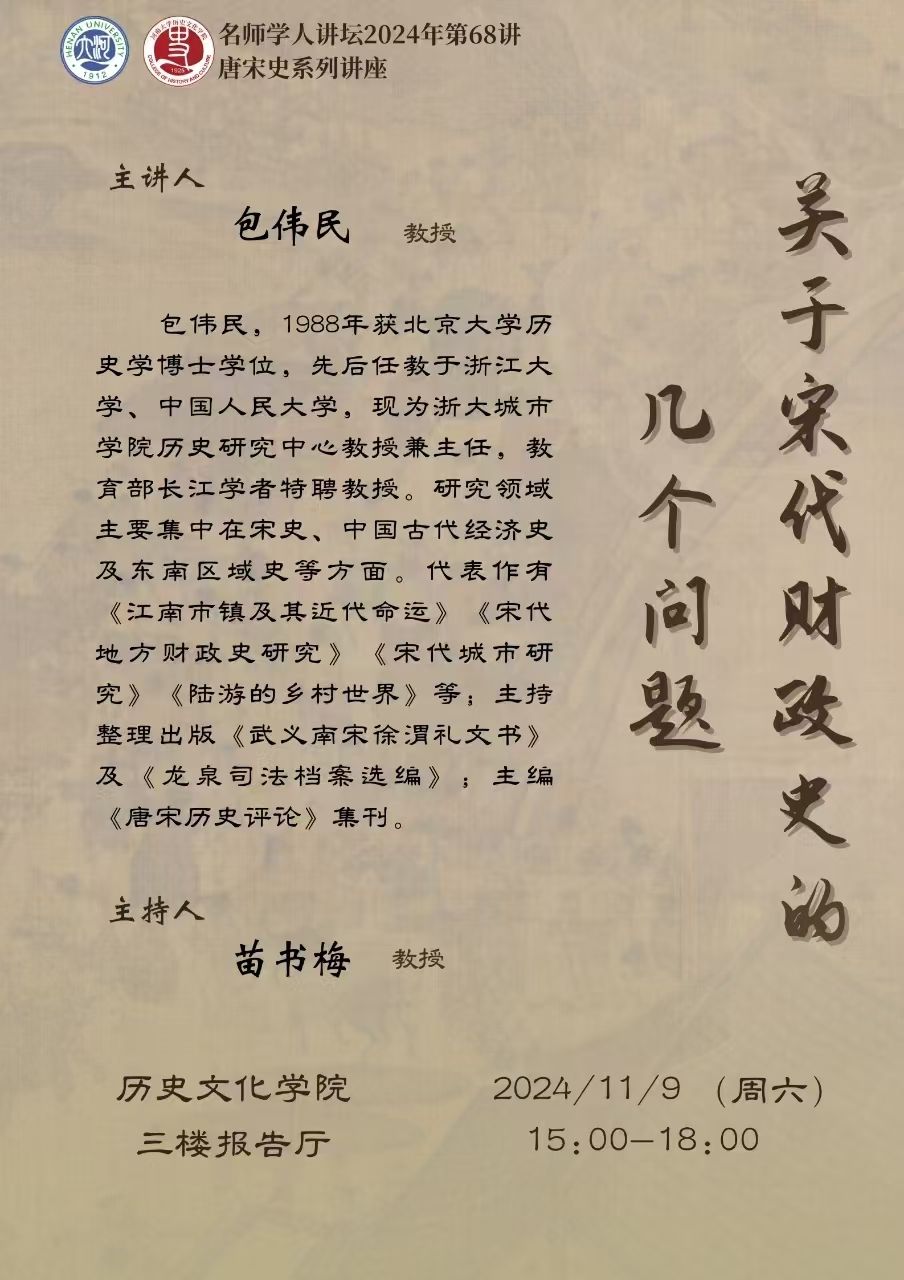 HENAN UNIVERSITY
1912
河南大学历史文化学院
1923
COLLEGE OF HISTORY AND CULTURE
名师学人讲坛2024年第68讲
唐宋史系列讲座
关于宋代财政史的
几个问题
主讲人
包伟民 教授
包伟民，1988年获北京大学历
史学博士学位，先后任教于浙江大
学、中国人民大学，现为浙大城市
学院历史研究中心教授兼主任，教
育部长江学者特聘教授。研究领域
主要集中在宋史、中国古代经济史
及东南区域史等方面。代表作有
《江南市镇及其近代命运》《宋代
地方财政史研究》《宋代城市研
究》《陆游的乡村世界》等；主持
整理出版《武义南宋徐渭礼文书》
及《龙泉司法档案选编》；主编
《唐宋历史评论》集刊。
主持人
苗书梅 教授
历史文化学院
三楼报告厅
2024/11/9 （周六）
15:00—18:00